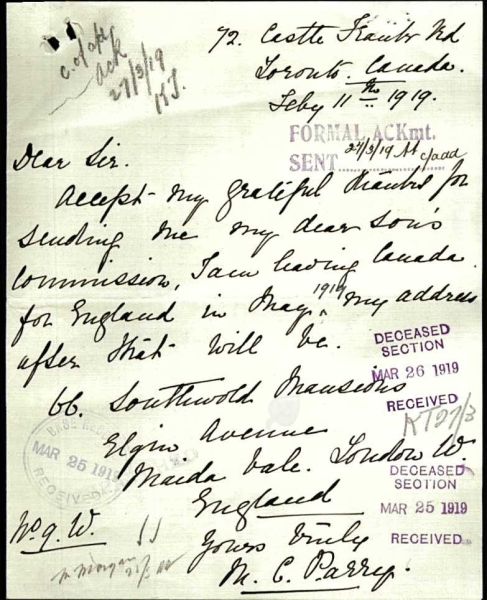 c. of add
Ack
27/3/19
72. Castle Frank Rd
Toronto. Canada.
Feby 11th 1919.
FORMAL ACKmt.
SENT 27/3/19 c/add
Dear Sir.
Accept my grateful thanks for
sending me my dear son's
commission, I am leaving Canada
for England in May, 1919 my address
after that will be.
66. Southwold Mansions
Elgin Avenue
Maida Vale. London W.
England
Yours truly
M. C. Parry.
DECEASED
SECTION
MAR 26 1919
RECEIVED
27/3
DECEASED
SECTION
MAR 25 1919
RECEIVED
MAR 25 1919
RECEIVED
No 9. W.